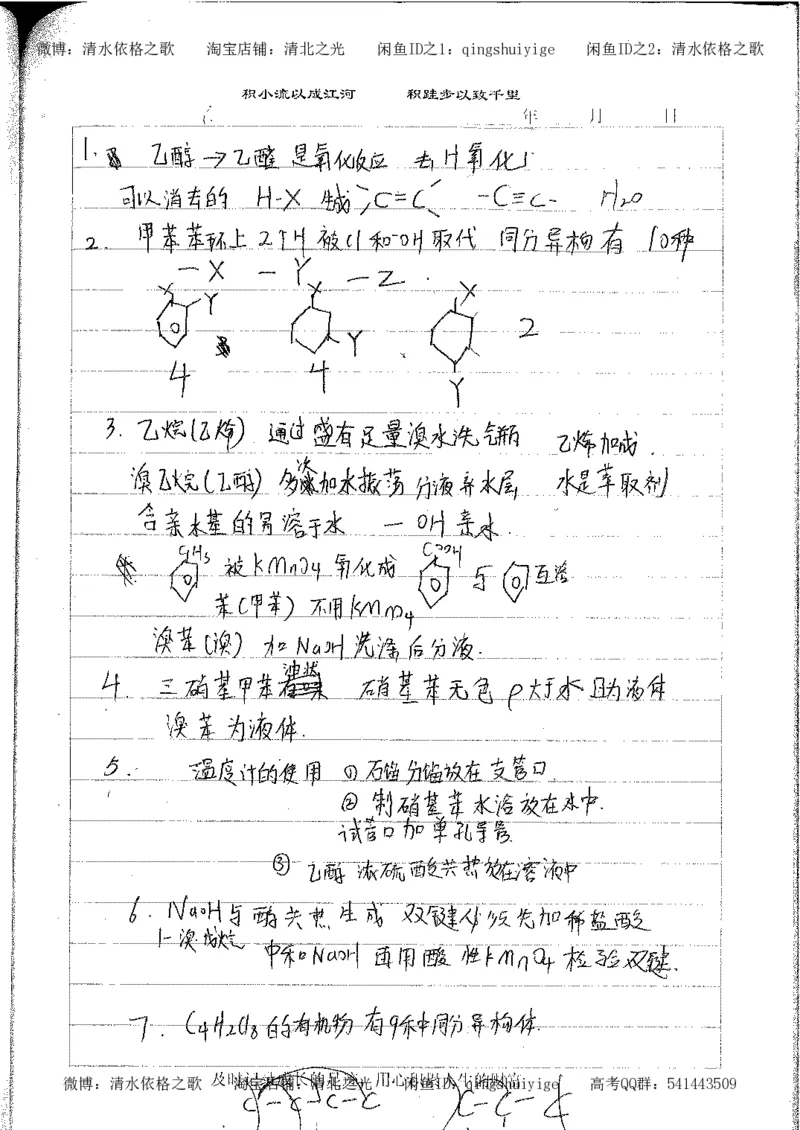 微博：清水依格之歌 淘宝店铺：清北之光 闲鱼ID之1：qingshuiyige 闲鱼ID之2：清水依格之歌
积小流以成江河 积跬步以致千里
年 月 日
1. 乙醇→乙醛 是氧化反应 去H氧化
可以消去的 H-X 生成 >C=C< -C≡C- H2O
2. 甲苯苯环上2个H被Cl和-OH取代 同分异构有10种
-X -Y -Z.
X Y X Y X Y 2
4 4
3. 乙烷(乙烯) 通过盛有足量溴水洗气瓶 乙烯加成.
溴乙烷(乙醇) 多次加水振荡 分液弃水层 水是萃取剂
含亲水基的易溶于水 -OH亲水.
CH3 被KMnO4氧化成 COOH 与 互溶
苯(甲苯) 不用KMnO4
溴苯(溴) 加NaOH洗涤后分液.
4. 三硝基甲苯 油状 硝基苯无色 ρ大于水 且为液体
溴苯为液体.
5. 温度计的使用 ①石油分馏放在支管口
②制硝基苯水浴放在水中.
试管口加单孔导管
③乙醇浓硫酸共热放在溶液中
6. NaOH与醇共热生成双键必须先加稀盐酸
1-溴
中和NaOH 再用酸性KMnO4检验双键.
7. C4H2Cl8的有机物有9种同分异构体.
微博：清水依格之歌 淘宝店铺：清北之光 闲鱼ID：qingshuiyige 高考QQ群：541443509
C-C-C-C C-C-C